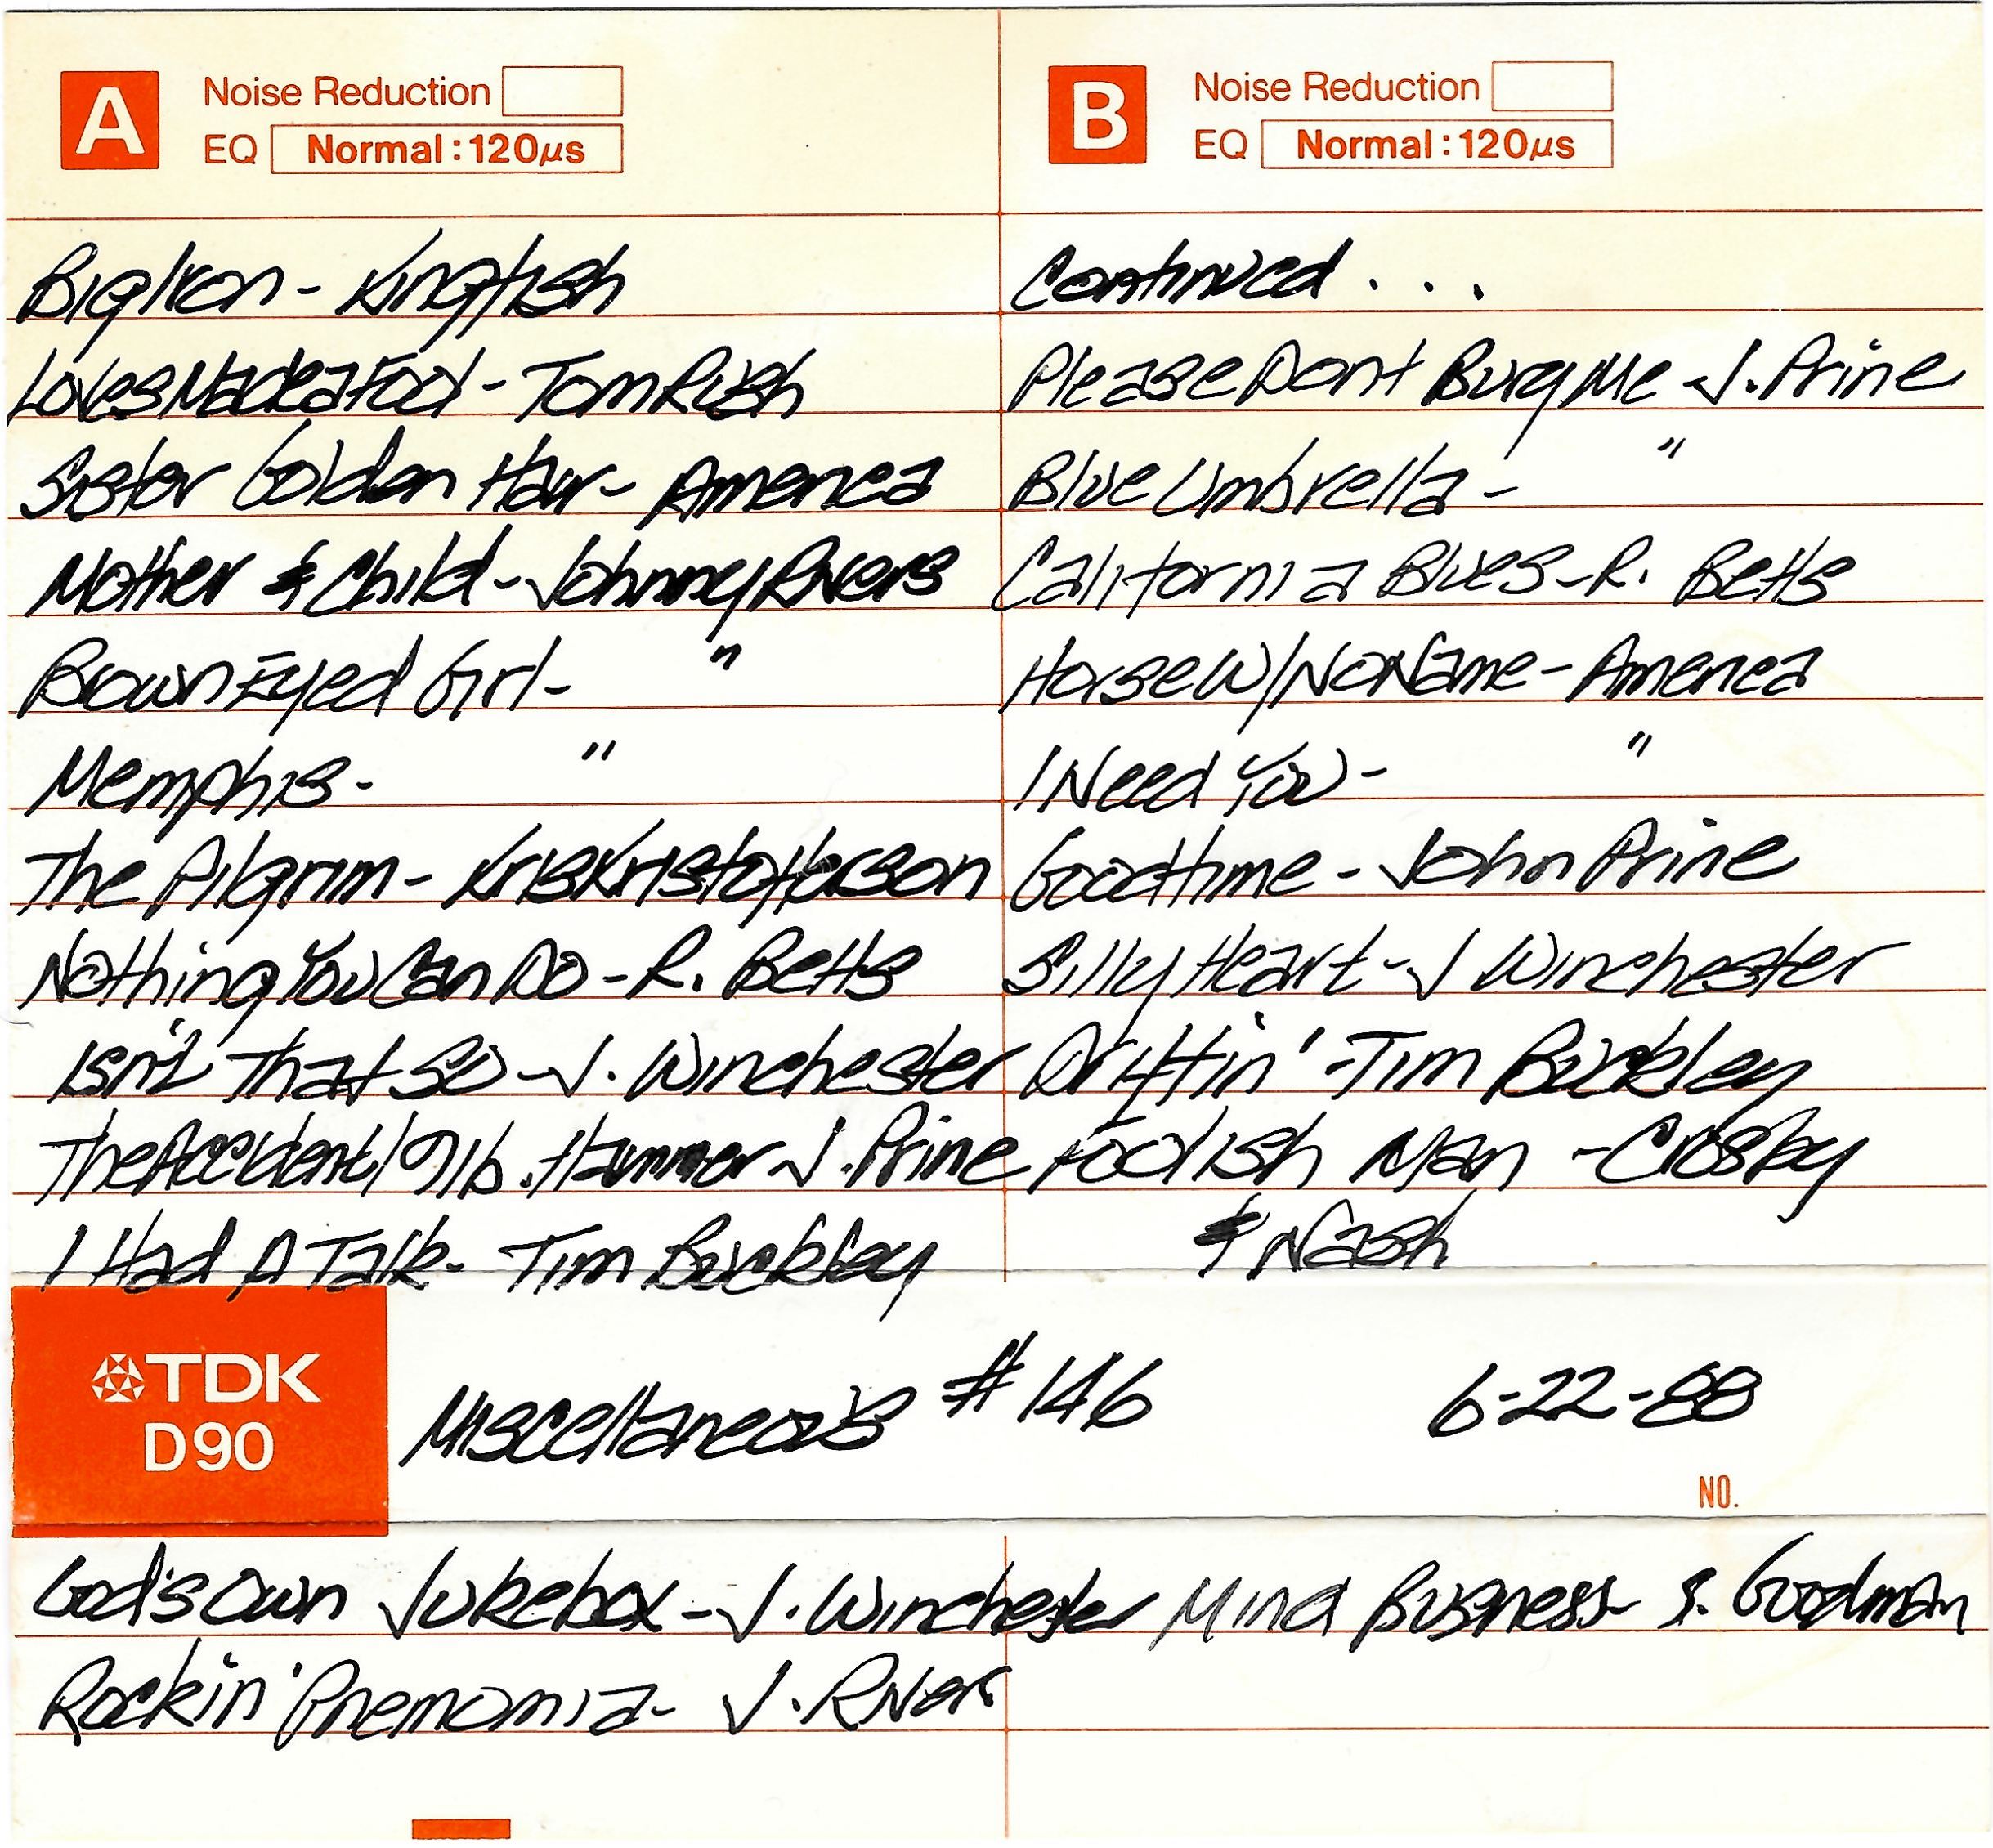 A
Noise Reduction
EQ Normal : 120µs
Big Iron - Kingfish
Loves Made a Fool - Tom Rush
Sister Golden Hair - America
Mother & Child - Johnny Rivers
Brown Eyed Girl - "
Memphis - "
The Pilgrim - Kris Kristofferson
Nothing You Can Do - R. Betts
Isn't That So - J. Winchester
The Accident/ 91b. Hammer - J. Prine
I Had A Talk - Tim Buckley
B
Noise Reduction
EQ Normal : 120µs
Continued . . .
Please Dont Bury Me - J. Prine
Blue Umbrella - "
California Blues - R. Betts
Horse W/ No Name - America
I Need You - "
Good time - John Prine
Silly Heart - J Winchester
Driftin' - Tim Buckley
Foolish Man - Crosby
& Nash
TDK
D90
Miscellaneous #146 6-22-88
NO.
God's Own Jukebox - J. Winchester Mind Business S. Goodman
Rockin' Pnemomia - J. Rivers